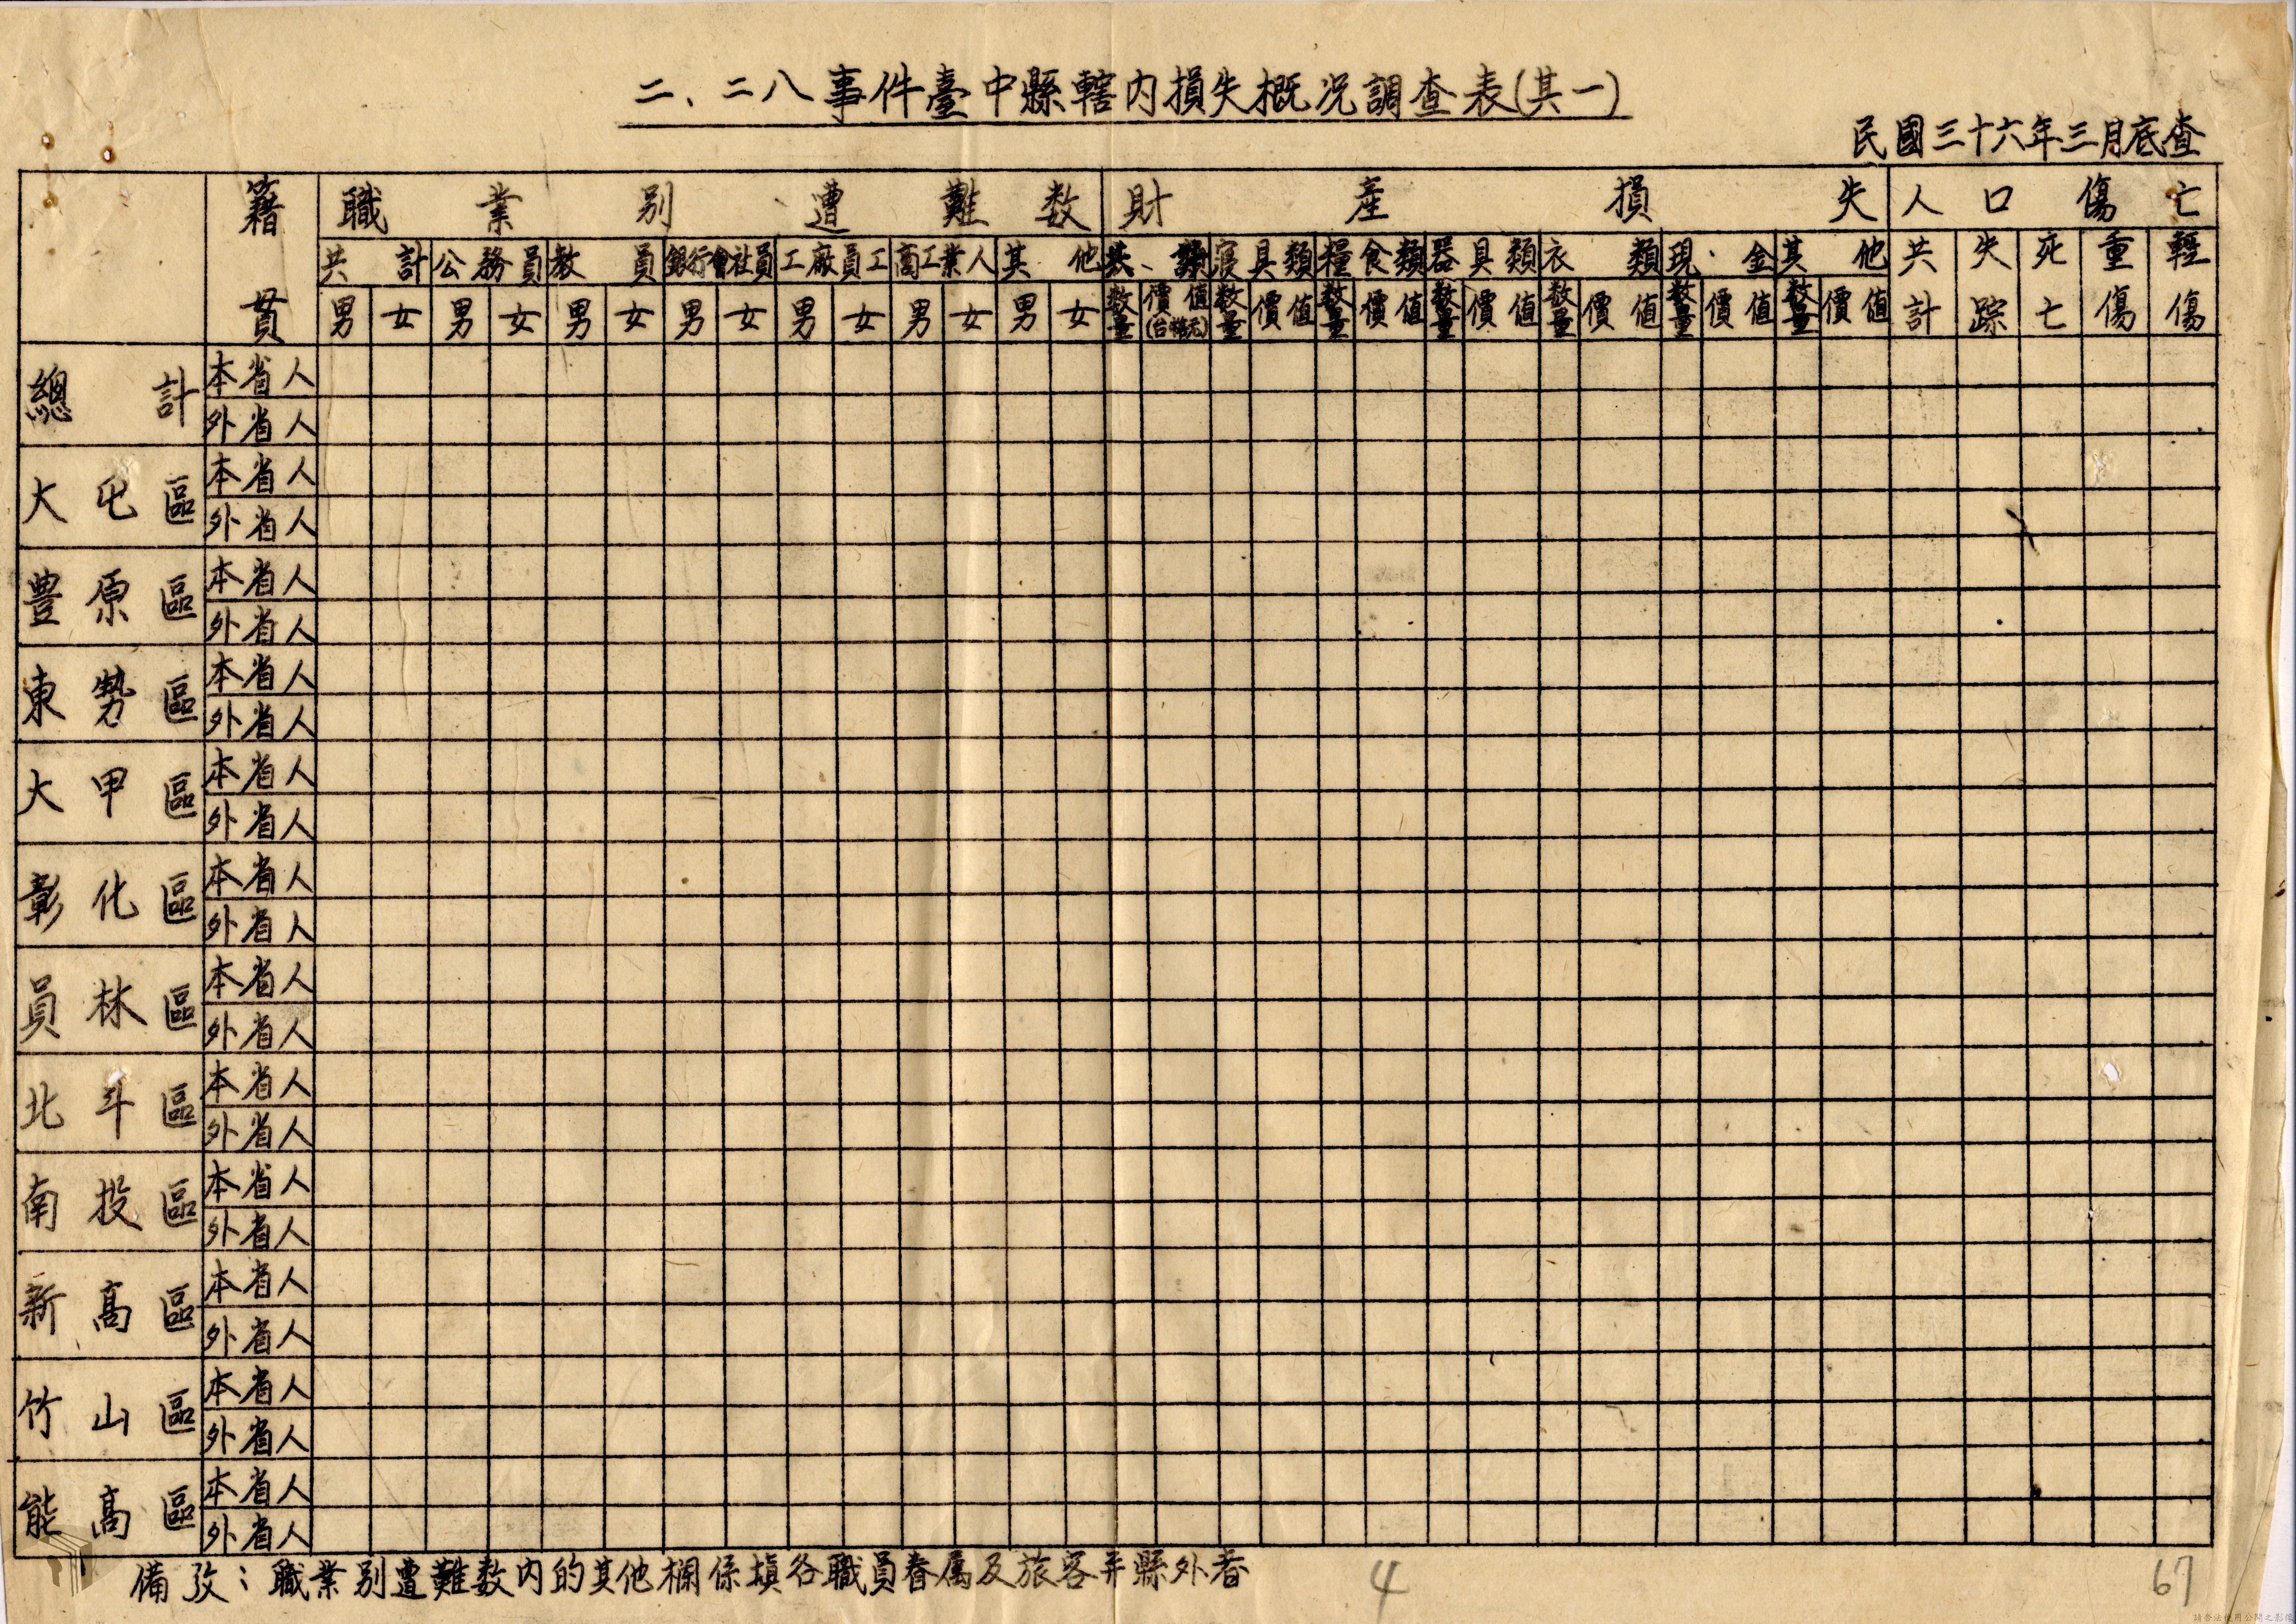 二、二八事件臺中縣轄內損失概況調查表(其一)
民國三十六年三月底查
籍貫 職業別遭難数 財產損失 人口傷亡
共計 公務員 教員 銀行會社員 工廠員工 商工業人 其他 共 寢具類 糧食類 器具類 衣類 現金 其他 共計 失踪 死亡 重傷 輕傷
男 女 男 女 男 女 男 女 男 女 男 女 男 女 数量 價值(台幣元) 数量 價值 数量 價值 数量 價值 数量 價值 数量 價值 数量 價值
總計 本省人
外省人
大屯區 本省人
外省人
豊原區 本省人
外省人
東勢區 本省人
外省人
大甲區 本省人
外省人
彰化區 本省人
外省人
員林區 本省人
外省人
北斗區 本省人
外省人
南投區 本省人
外省人
新高區 本省人
外省人
竹山區 本省人
外省人
能高區 本省人
外省人
備攷：職業別遭難数內的其他欄係填各職員眷属及旅客并縣外者
4
67